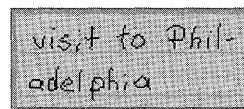 visit to Phil-
adelphia